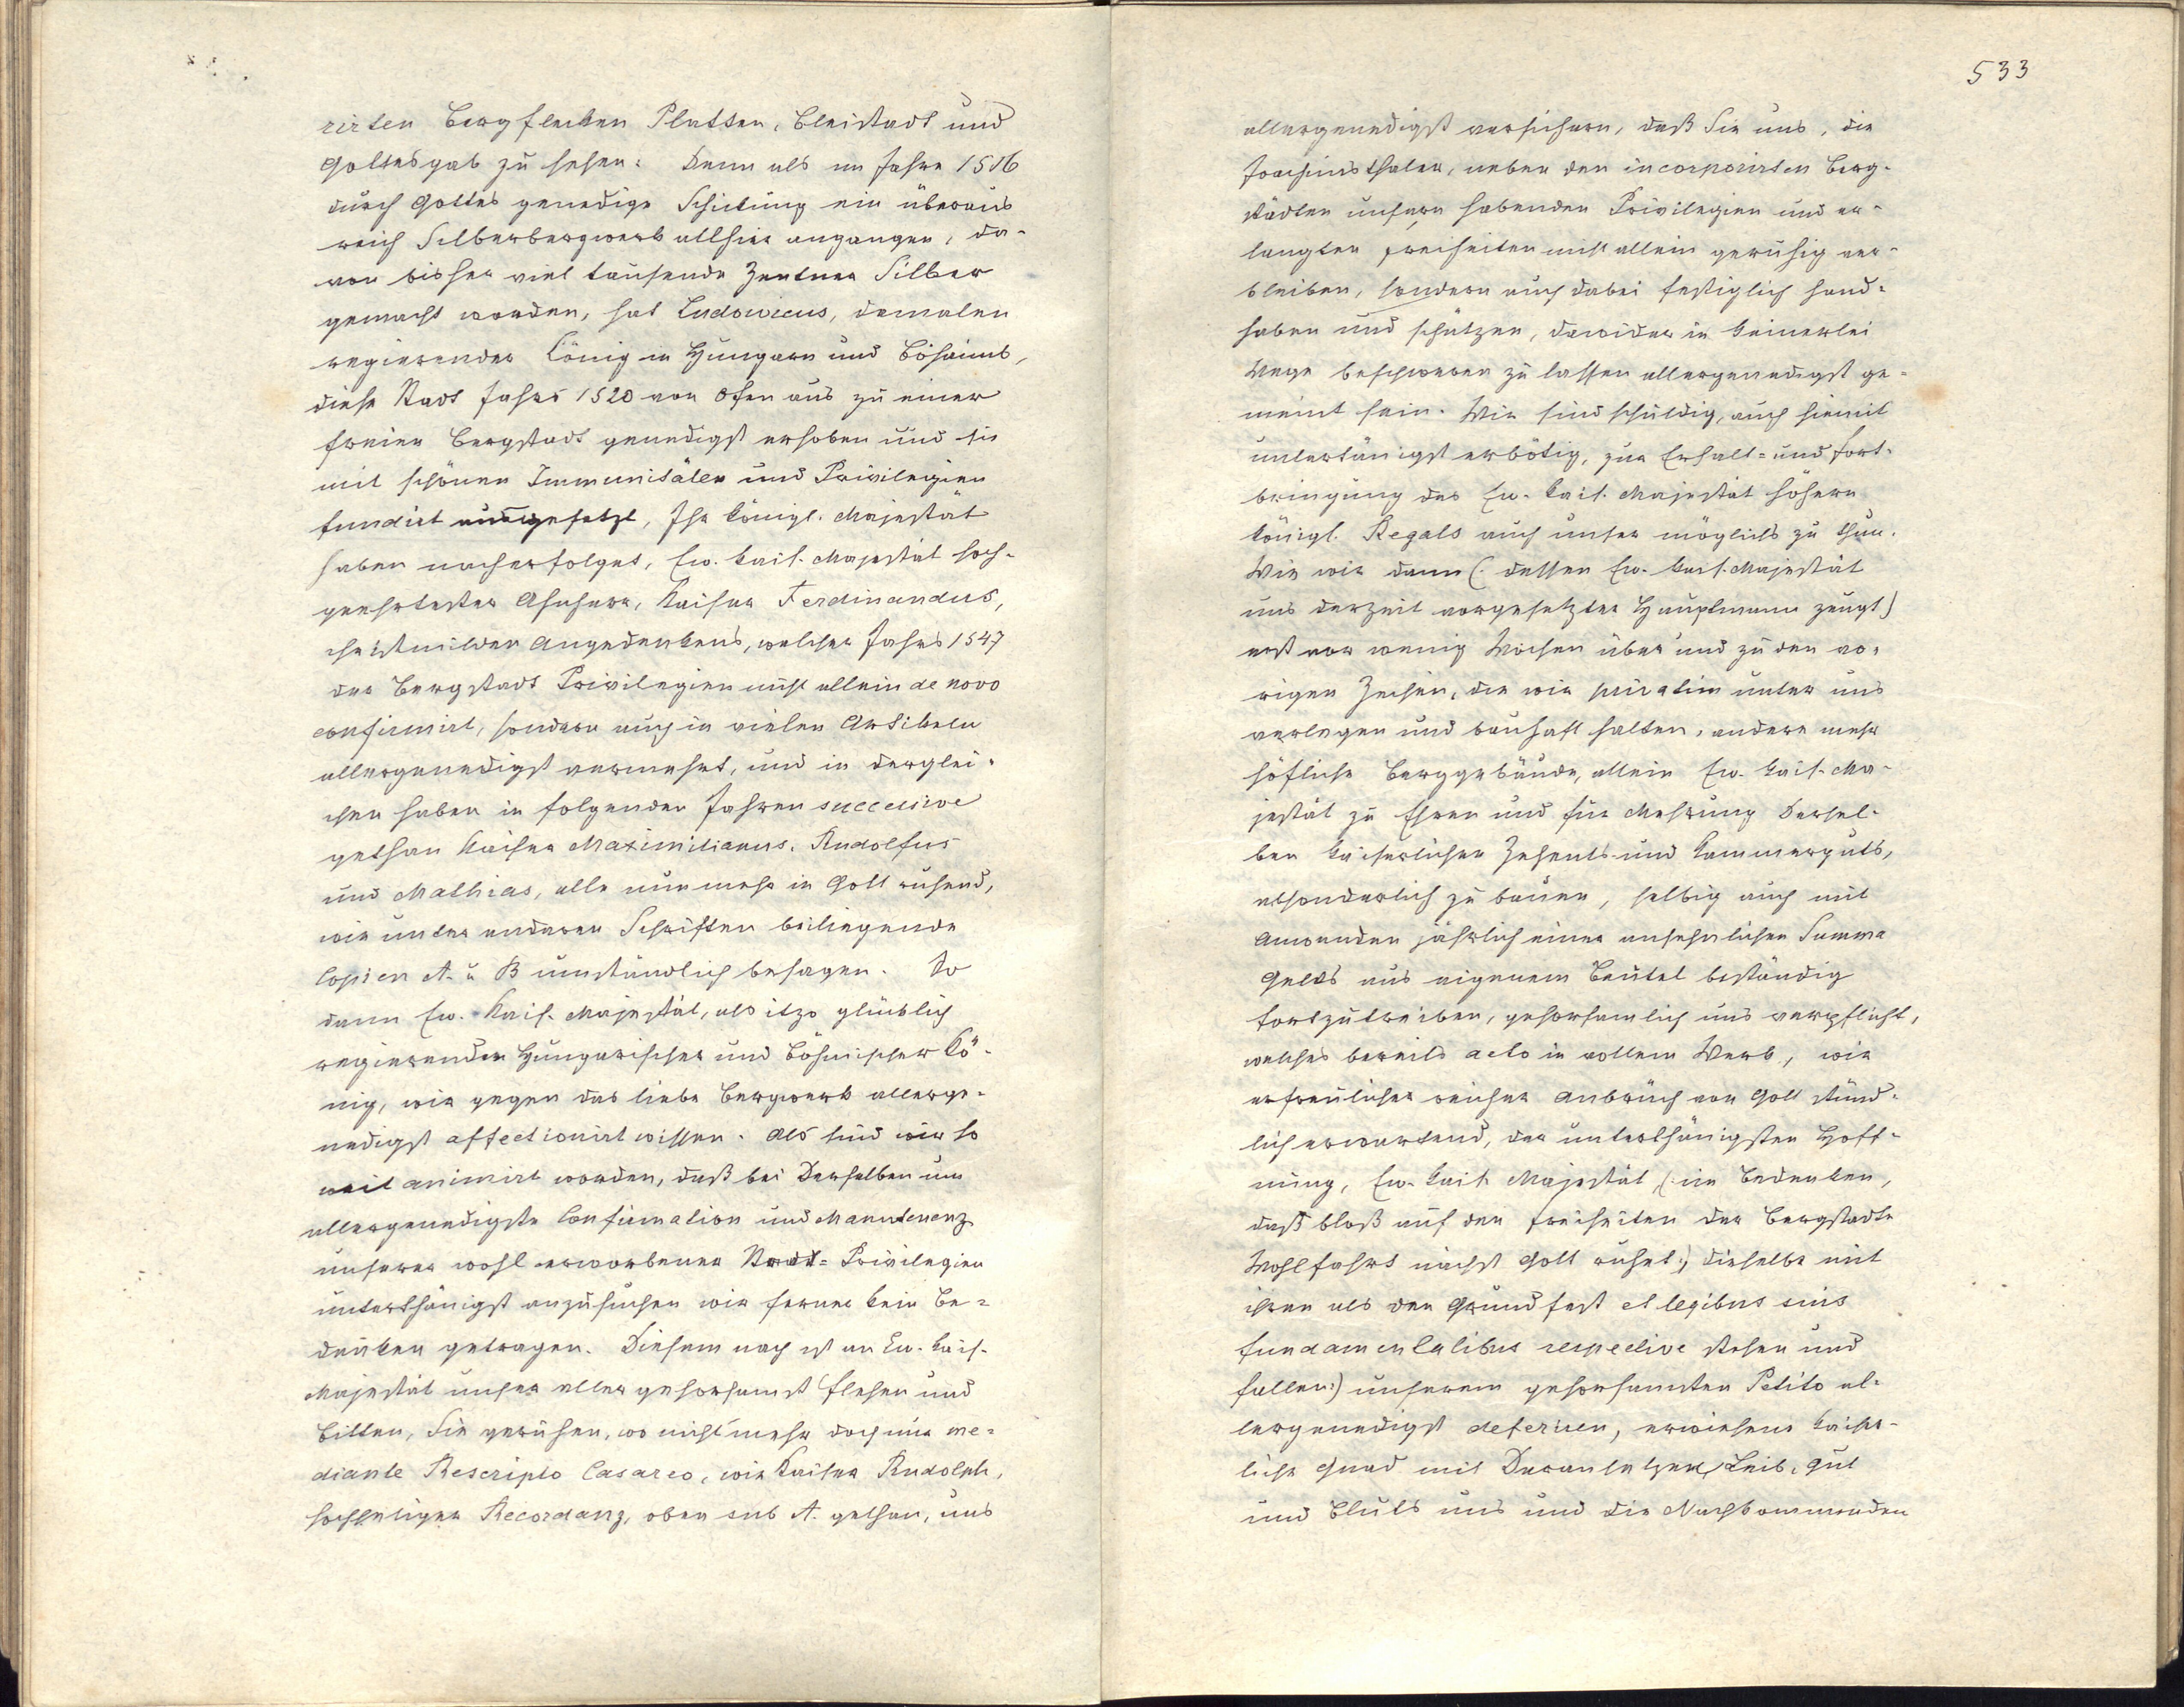 rirten Bergflecken Platten, Bleistadt und
Gottesgab zu sehen. Denn als im Jahre 1516
durch Gottes genedige Schickung ein überaus
reich Silberbergwerk allhier angangen, da-
von bisher viel tausende Zentner Silber
gemacht worden, hat Ludovicus, damalen
regierender König in Hungarn und Böhaimb,
diese Stadt Jahrs 1520 von Ofen aus zu einer
freien Bergstadt genedigst erhoben und sie
mit schönen Immunitäten und Privilegien
fundirt ausgesetzt, Ihr königl. Majestät
haben nacherfolget, Ew. kais. Majestät hoch-
geehrtester Ahnherr, Kaiser Ferdinandus,
christmilden Angedenkens, welcher Jahrs 1547
der Bergstadt Privilegien nicht allein de novo
confirmirt, sondern auch in vielen Artikeln
allergenedigst vermehrt, und in derglei-
chen haben in folgenden Jahren successive
gethan Kaiser Maximilianus, Rudolfus
und Mathias, alle nunmehr in Gott ruhend,
wie unter anderen Schriften beiliegende
Copien A. u B umständlich besagen. So
dann Ew. Kais. Majestät, als itzo glücklich
regierenden Hungarischer und Böhmischer Kö-
nig, wir gegen das liebe Bergwerk allerge-
nedigst affectionirt wissen. Als sind wir so
weit animirt worden, daß bei Derselben um
allergenedigste Confirmation und Manutenenz
unserer wohl erworbenen Stadt-Privilegien
unterthänigst anzusuchen wir ferner kein Be-
denken getragen. Diesem nach ist an Ew. kais.
Majestät unser aller gehorsamst flehen und
bitten, Sie geruhen, wo nicht mehr doch nur me-
diante Rescripto Casareo, wie Kaiser Rudolph,
hochseliger Recordanz, oben sub A. gethan, uns
533
allergenedigst versichern, daß Sie uns, die
Joachimsthaler, neben den incorporirten Berg-
städten unsern habenden Privilegien und er-
langten Freiheiten nicht allein geruhig ver-
bleiben, sondern auch dabei festiglich hand-
haben und schützen, dawider in keinerlei
Wege beschweren zu lassen allergenedigst ge-
meint sein. Wir sind schuldig, auch hiemit
untertänigst erbötig, zur Erhalt- und Fort-
bringung des Ew. kais. Majestät höhern
königl. Regals auch unser möglichs zu thun.
Wie wir dann (: dessen Ew. kais. Majestät
uns derzeit vorgesetzter Hauptmann zeugt)
erst vor wenig Wochen über und zu den vo-
rigen Zechen, die wir privatim unter uns
verlegen und bauhaft halten, andere mehr
höfliche Berggebäude, allein Ew. kais. Ma-
jestät zu Ehren und für Mehrung Dersel-
ben kaiserlichen Zehents- und Kammerguts,
absonderlich zu bauen, selbig auch mit
Anwenden jährlich einer ansehnlichen Summa
Gelds aus eigenem Beutel beständig
fortzutreiben, gehorsamlich uns verpflicht,
welches bereits acto in vollem Werk, wir
erfreulicher reicher Anbrüch von Gott stünd-
lich erwartend, der unterthänigsten Hoff-
nung, Ew. kais. Majestät (: in Bedenken,
daß bloß auf den Freiheiten der Bergstadte
Wohlfahrt nächst Gott ruhet:) dieselbe mit
ihren als den Grundfest et legibus suis
fundamentalibus respective stehen und
fallen:) unserem gehorsamsten Petito al-
lergenedigst deferiren, erwiesene kaiser-
liche Gnad mit Daransetzen Leib, Gut
und Bluts uns und die Nachkommenden